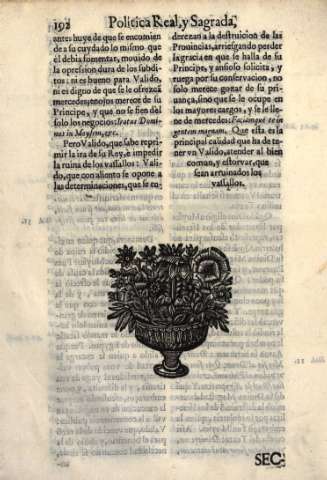 192 Politica Real, y Sagrada,
antes huye de que se encomien
de a su cuydado lo mismo que
èl debia fomentar, mouido de
la opresion dura de los subdi-
tos: ni es bueno para Valido,
ni es digno de que se le ofrezcã
mercedes, enojos merece de su
Principe, y que no se fien dèl
solo los negocios: Iratus Domi-
nus in Moysem, &c.
Pero Valido, que sabe repri-
mir la ira de su Rey, è impedir
la ruina de los vassallos: Vali-
do, que con aliento se opone a
las determinaciones, que se en-
derezan a la destruicion de las
Prouincias, arriesgando perder
la gracia en que se halla de su
Principe, y ansioso solicita, y
ruega por su conseruacion, no
solo merece gozar de su pri-
uança, sino que se le ocupe en
los mayores cargos, y se le lle-
ne de mercedes: Faciamque te in
gentem magnam. Que esta es la
principal calidad que ha de te-
ner vn Valido, atender al bien
comun, y estorvar, que
sean arruinados los
vassallos.
SEC-